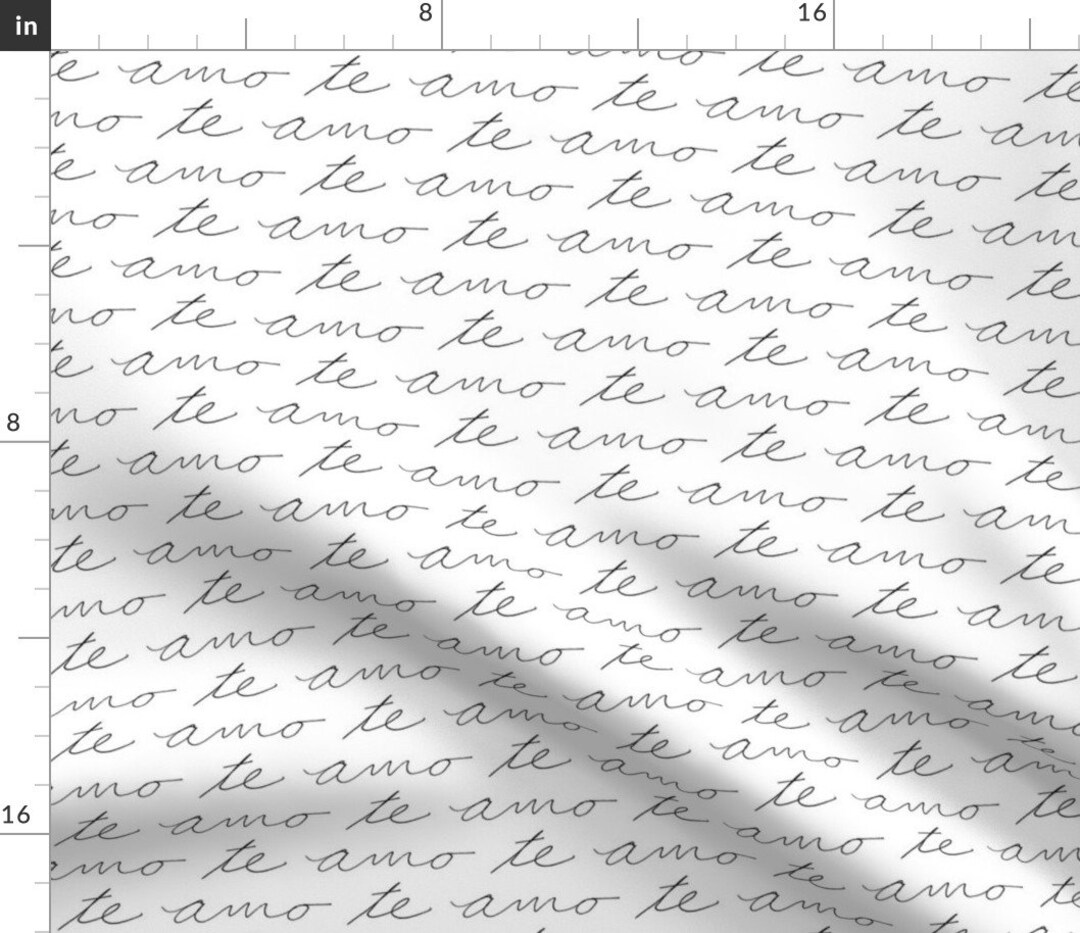 in 8 16
te amo te amo te amo te
te amo te amo te amo te
mo te amo te amo te am
te amo te amo te amo te
mo te amo te amo te am
te amo te amo te amo te
mo te amo te amo te am
te amo te amo te amo te
8
mo te amo te amo te am
te amo te amo te amo te
mo te amo te amo te am
te amo te amo te amo te
mo te amo te amo te am
te amo te amo te amo te
mo te amo te amo te amo
te amo te amo te amo te
16
amo te amo te amo te am
te amo te amo te amo te am
amo te amo te amo te amo te
te amo te amo te amo